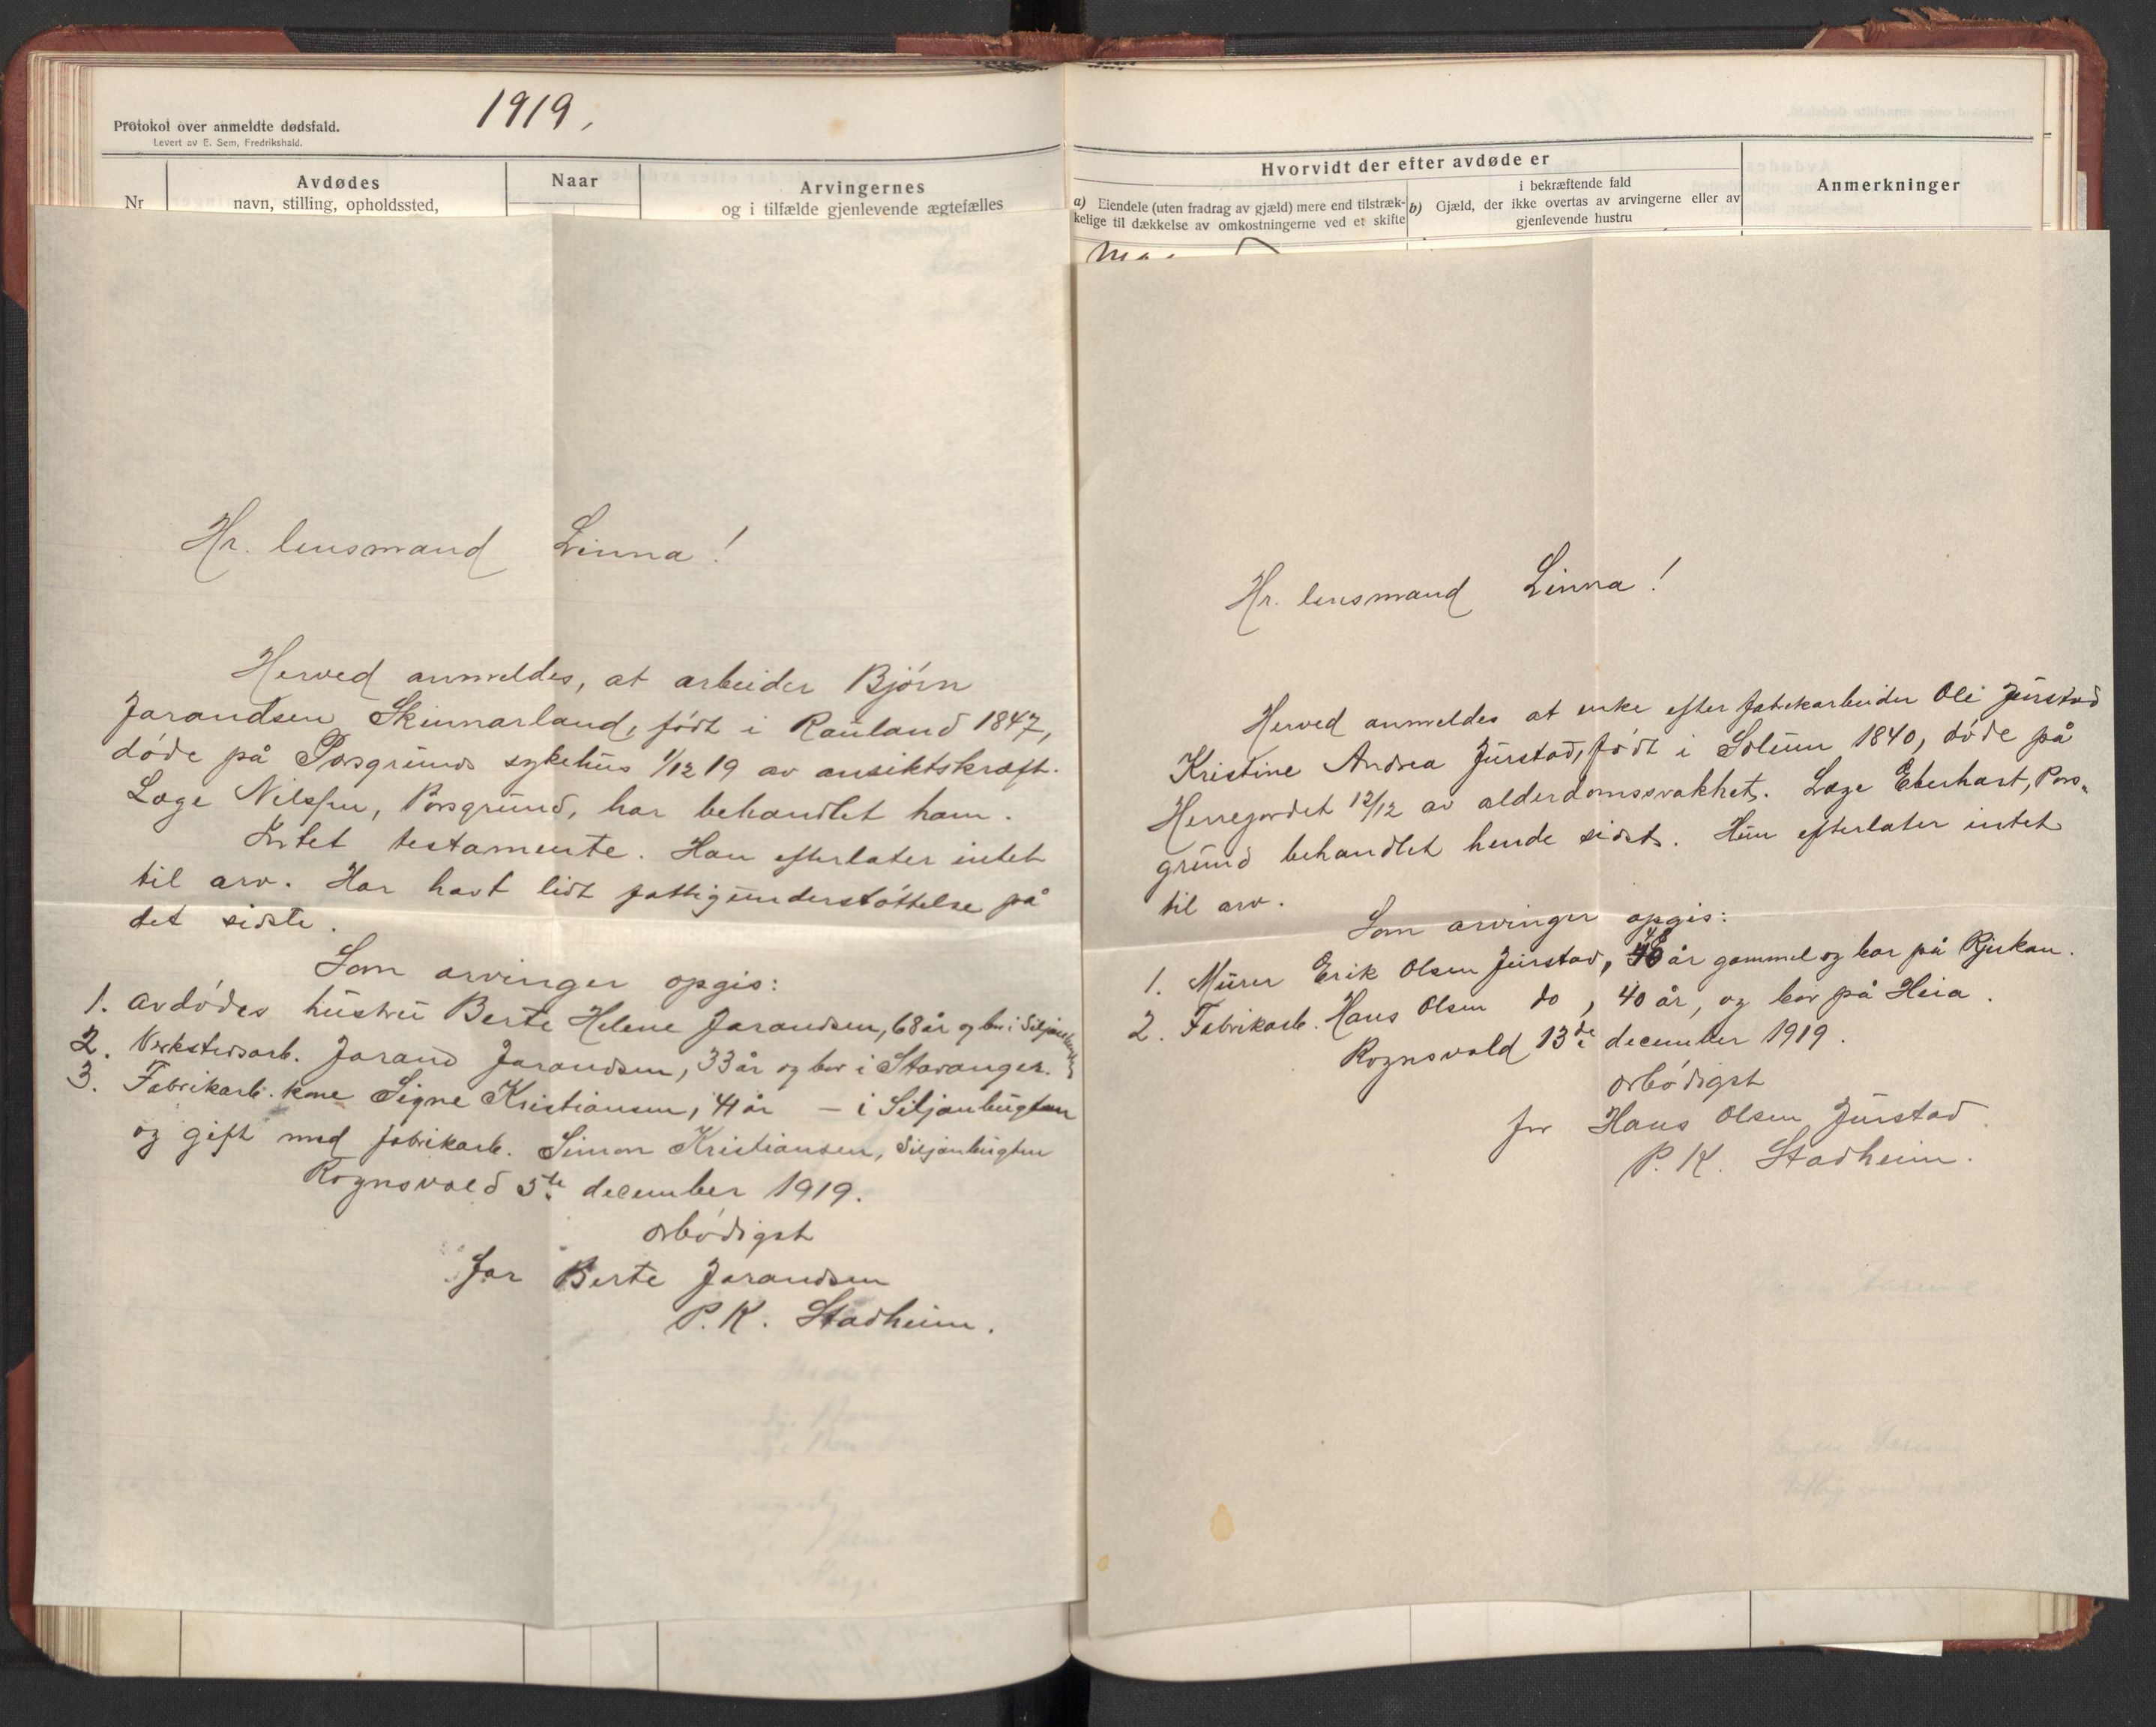 1919,
Protokol over anmeldte dødsfald.
Levert av E. Sem, Fredrikshald.
Nr
Avdødes
navn, stilling, opholdssted,
Naar
Arvingernes
og i tilfælde gjenlevende ægtefælles
Hr. lensmand Linna!
Herved anmeldes, at arbeider Bjørn
Jarandsen Skinnarland, født i Rauland 1847,
døde på Porsgrunds sykehus 1/12 19 av ansiktskræft.
Læge Nilssen, Porsgrund, har behandlet ham.
Intet testamente. Han efterlater intet
til arv. Har havt lidt fattigunderstøttelse på
det sidste.
Som arvinger opgis:
1. Avdødes hustru Berte Helene Jarandsen, 68 år og bor i Siljanbugten
2. Verkstedsarb. Jarand Jarandsen, 33 år og bor i Stavanger.
3. Fabrikarb. kone Signe Kristiansen, 41 år — i Siljanbugten
og gift med fabrikarb. Simon Kristiansen, Siljanbugten
Rognsvald 5te december 1919.
ærbødigst
for Berte Jarandsen
P. K. Stadheim.
Hvorvidt der efter avdøde er
a) Eiendele (uten fradrag av gjæld) mere end tilstræk-
kelige til dækkelse av omkostningerne ved et skifte
b)
i bekræftende fald
Gjæld, der ikke overtas av arvingerne eller av
gjenlevende hustru
Anmerkninger
Hr. lensmand Linna!
Herved anmeldes at enke efter fabrikarbeider Ole Jurstad
Kristine Andrea Jurstad, født i Solum 1840, døde på
Herregordet 12/12 av alderdomssvakhet. Læge Eberhart, Pors-
grund behandlet hende sidst. Hun efterlater intet
til arv.
Som arvinger opgis:
1. Murer Erik Olsen Jurstad, 48 år gammel og bor på Rjukan.
2. Fabrikarb. Hans Olsen do, 40 år, og bor på Heia.
Rognsvald 13de december 1919.
ærbødigst
for Hans Olsen Jurstad
P. K. Stadheim.